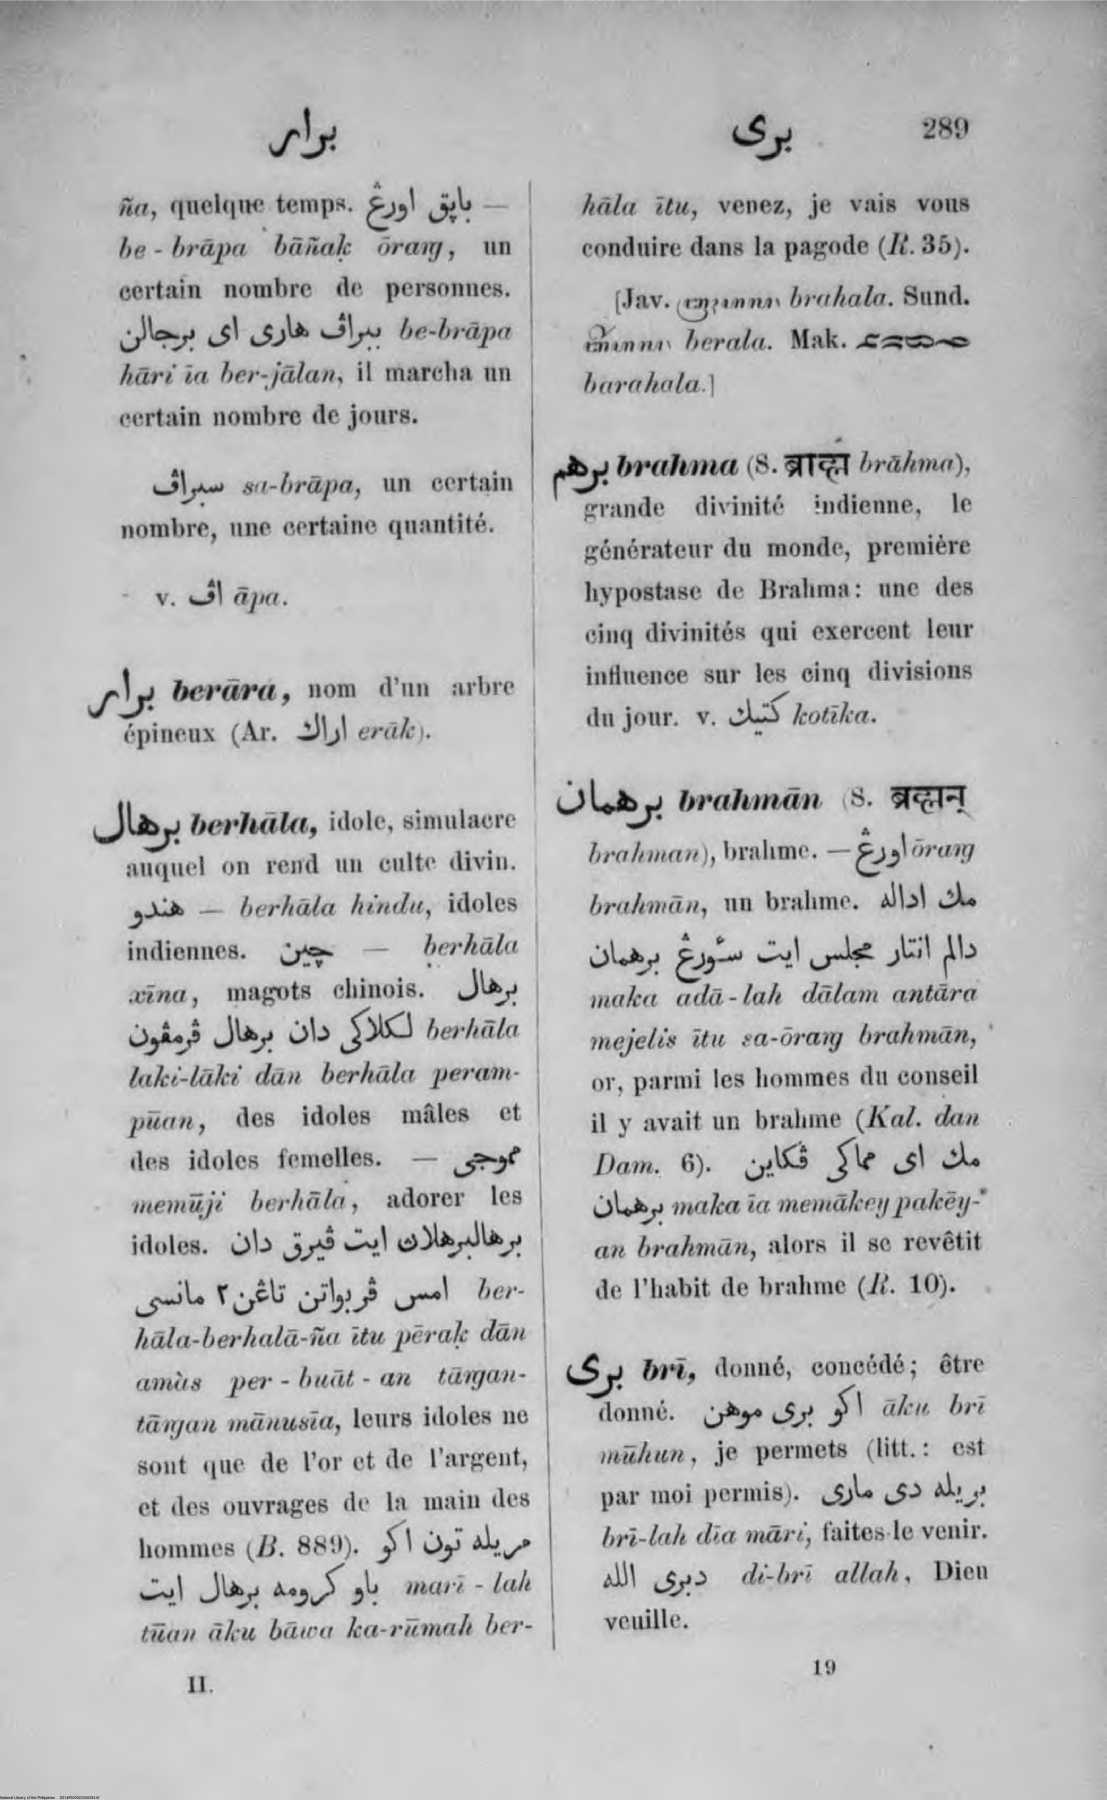 برار
بری 289
ña, quelque temps. باپق اورڠ —
be-brāpa bāñaḳ ōraɪŋ, un
certain nombre de personnes.
ببراڤ هاری ای برجالن be-brāpa
hāri īa ber-jālan, il marcha un
certain nombre de jours.
سبراڤ sa-brāpa, un certain
nombre, une certaine quantité.
v. اڤ āpa.
برار berāra, nom d'un arbre
épineux (Ar. اراك erāk).
برهال berhāla, idole, simulacre
auquel on rend un culte divin.
هندو — berhāla hindu, idoles
indiennes. چين — berhāla
xīna, magots chinois. برهال
لكلاكی دان برهال ڤرمڤون berhāla
laki-lāki dān berhāla peram-
pūan, des idoles mâles et
des idoles femelles. — مموجی
memūji berhāla, adorer les
idoles. برهالبرهلاڽ ايت ڤيرق دان
امس ڤربواتن تاڠن٢ مانسی ber-
hāla-berhalā-ña ītu pēraḳ dān
amàs per-buāt-an tāɪŋan-
tāɪŋan mānusīa, leurs idoles ne
sont que de l'or et de l'argent,
et des ouvrages de la main des
hommes (B. 889). مريله تون اكو
باو كرومه برهال ايت marī-lah
tūan āku bāwa ka-rūmah ber-
II.
hāla ītu, venez, je vais vous
conduire dans la pagode (R. 35).
[Jav. brahala. Sund.
berala. Mak.
barahala.]
برهم brahma (S. ब्राह्म brāhma),
grande divinité indienne, le
générateur du monde, première
hypostase de Brahma: une des
cinq divinités qui exercent leur
influence sur les cinq divisions
du jour. v. كتيك kotīka.
برهمان brahmān (S. ब्रह्मन्
brahman), brahme. — اورڠ ōraɪŋ
brahmān, un brahme. مك اداله
دالم انتار مجلس ايت سٔورڠ برهمان
maka adā-lah dālam antāra
mejelis ītu sa-ōraɪŋ brahmān,
or, parmi les hommes du conseil
il y avait un brahme (Kal. dan
Dam. 6). مك ای مماكی ڤكاين
برهمان maka īa memākey pakēy-
an brahmān, alors il se revêtit
de l'habit de brahme (R. 10).
بری brī, donné, concédé; être
donné. اكو بری موهن āku brī
mūhun, je permets (litt.: est
par moi permis). بريله دی ماری
brī-lah dīa māri, faites-le venir.
دبری الله di-brī allah, Dieu
veuille.
19